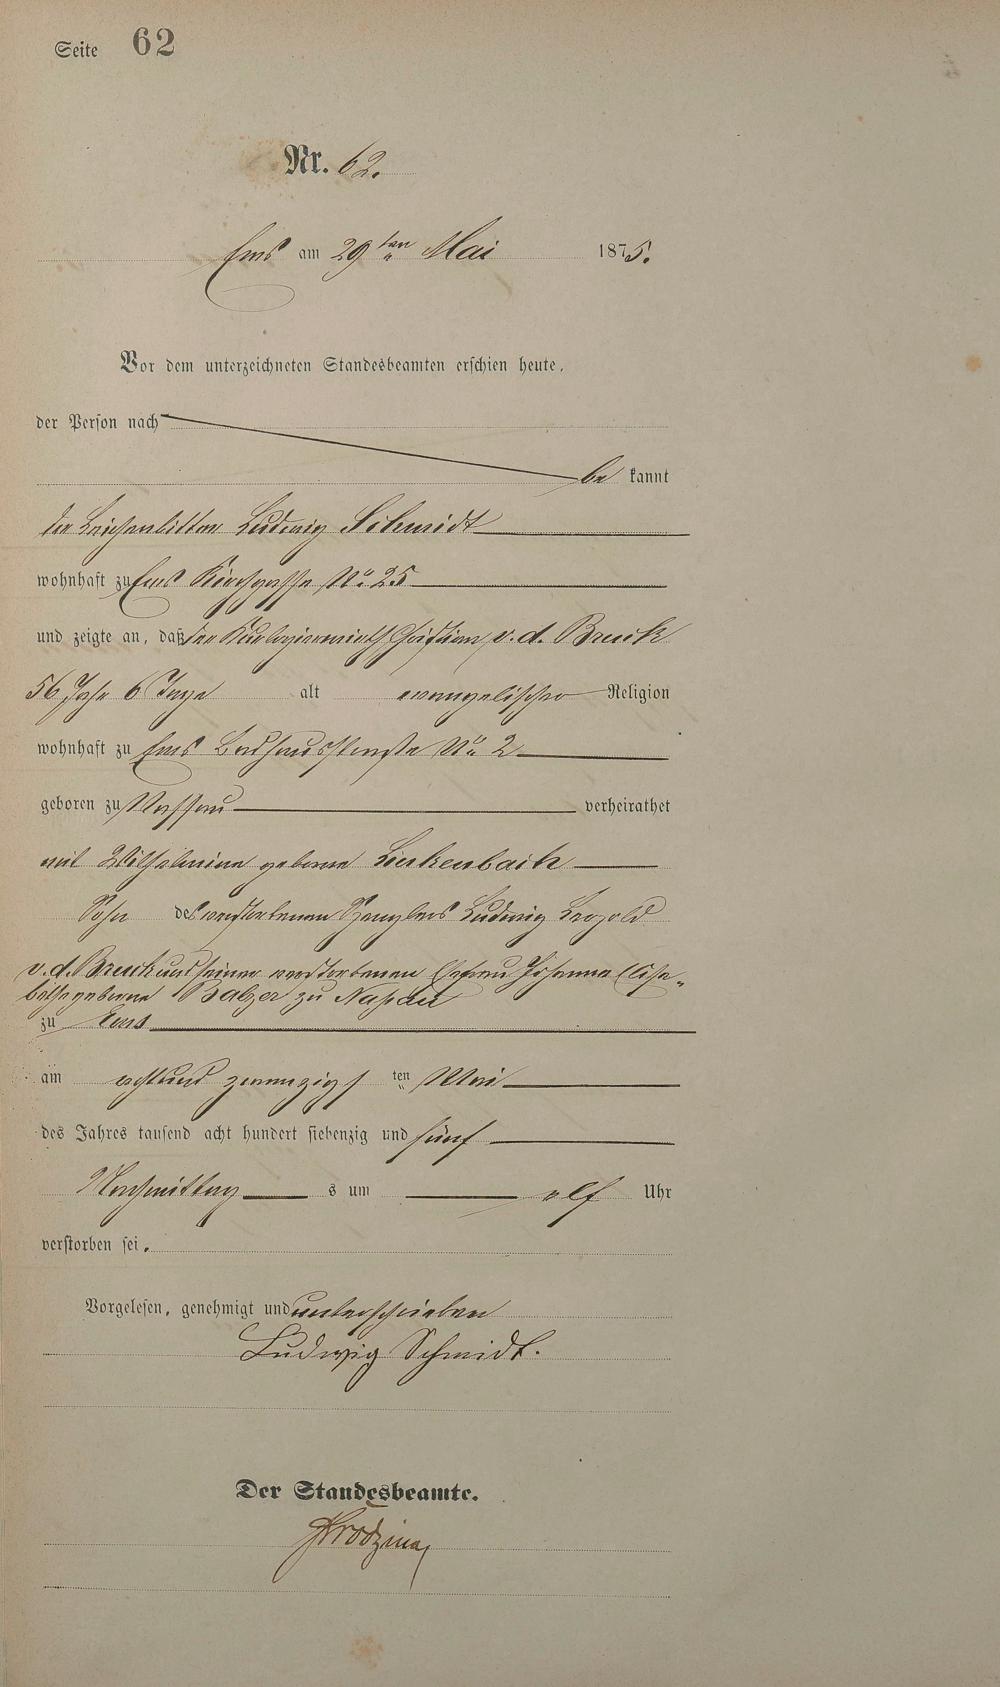 Seite 62
Nr. 62.
Ems am 29ten Mai 1875.
Vor dem unterzeichneten Standesbeamten erschien heute,
der Person nach
be kannt
der Leichenbitter Ludwig Schmidt
wohnhaft zu Ems Kirchgasse No. 25
und zeigte an, daß der v. d. Bruck
56 Jahr 6 Tage alt evangelischer Religion
wohnhaft zu Ems Badhausstraße No. 2
geboren zu Nassau verheirathet
mit Wilhelmine geborne Linkenbach
Sohn des verstorbenen Spenglers Ludwig Leopold
v. d. Bruck und seiner verstorbenen Ehefrau Johanna Elisa-
betha geborne Balzer zu Nassau
zu Ems
am acht und zwanzigs ten Mai
des Jahres tausend acht hundert siebenzig und fünf
Nachmittag s um elf Uhr
verstorben sei.
Vorgelesen, genehmigt und unterschrieben
Ludwig Schmidt.
Der Standesbeamte.